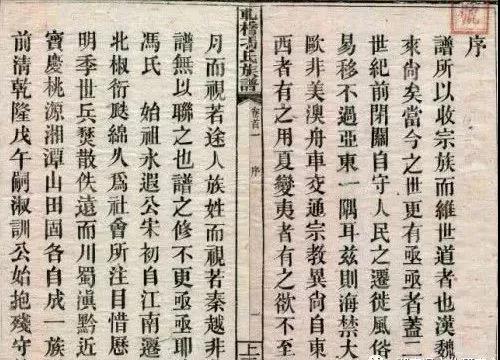 序
譜所以收宗族而維世道者也漢魏
來尙矣當今之世更有亟亟者蓋二
世紀前閉關自守人民之遷徙風俗
易移不過亞東一隅耳兹則海禁大
歐非美澳舟車交通宗教異尙自東
西者有之用夏變夷者有之欲不至
橋馮氏族譜
卷首一
序
一
上
月而視若途人族姓而視若秦越非
譜無以聯之也譜之修不更亟亟耶
馮氏 始祖永遐公宋初自江南遷
北椒衍瓞綿久爲社會所注目惜歷
明季世兵燹散佚遠而川蜀滇黔近
寶慶桃源湘潭山田固各自成一族
前清乾隆戊午嗣淑訓公始抱殘守